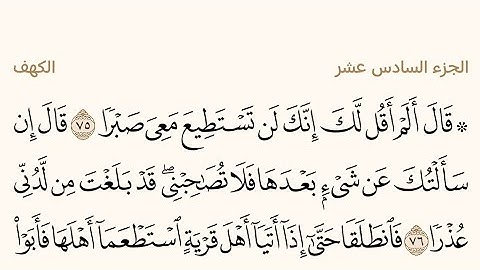 الجزء السادس عشر الكهف
* قَالَ أَلَمْ أَقُل لَّكَ إِنَّكَ لَن تَسْتَطِيعَ مَعِىَ صَبْرًا ٧٥ قَالَ إِن
سَأَلْتُكَ عَن شَىْءٍۭ بَعْدَهَا فَلَا تُصَٰحِبْنِى ۖ قَدْ بَلَغْتَ مِن لَّدُنِّى
عُذْرًا ٧٦ فَٱنطَلَقَا حَتَّىٰٓ إِذَآ أَتَيَآ أَهْلَ قَرْيَةٍ ٱسْتَطْعَمَآ أَهْلَهَا فَأَبَوْا۟